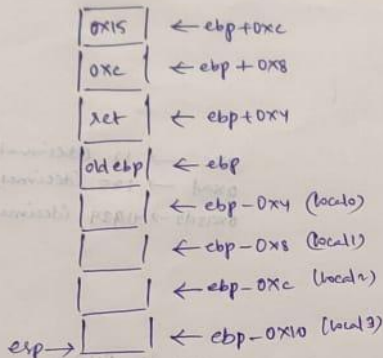 0x15 ← ebp+0xc
0xc ← ebp+0x8
ret ← ebp+0x4
old ebp ← ebp
← ebp-0x4 (local0)
← ebp-0x8 (local1)
← ebp-0xc (local2)
esp→ ← ebp-0x10 (local3)